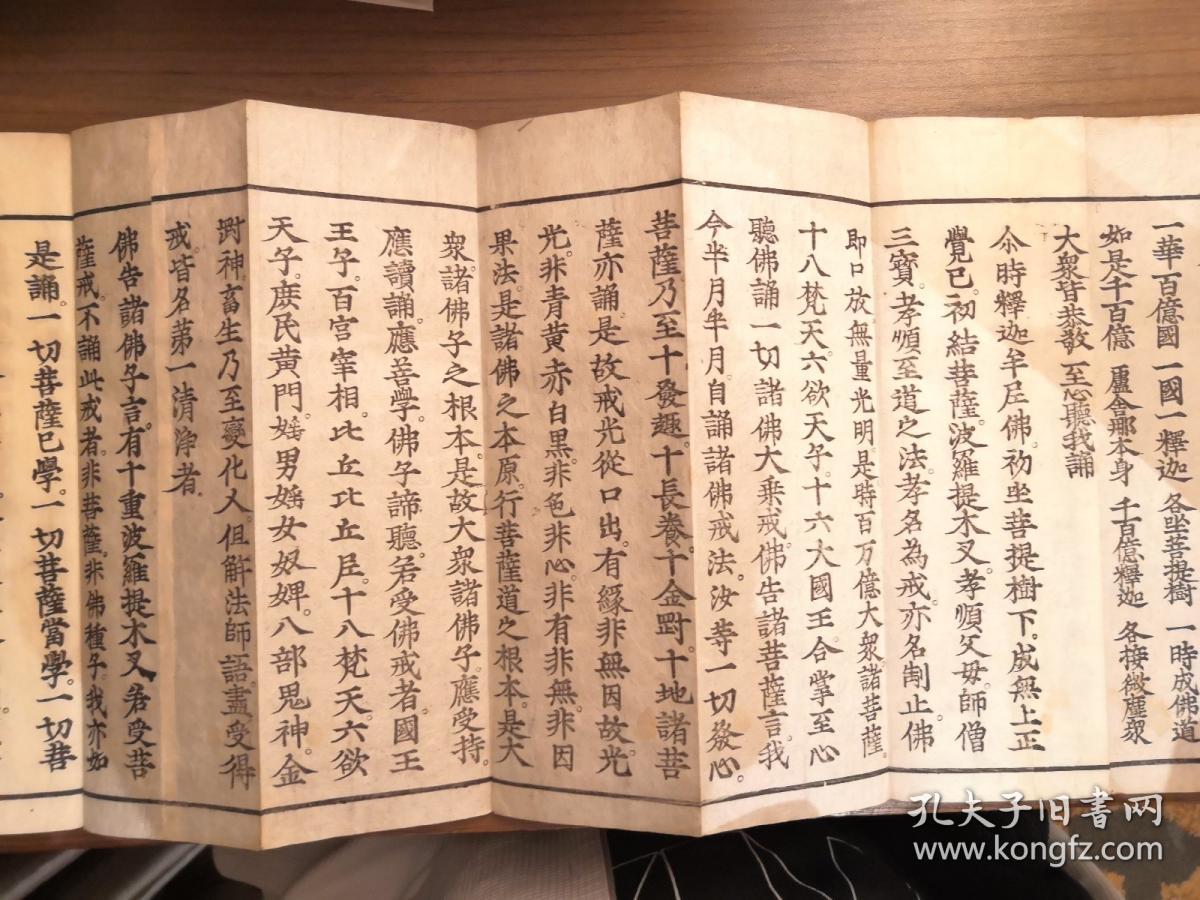 一華百億國 一國一釋迦 各坐菩提樹 一時成佛道
如是千百億 盧舍那本身 千百億釋迦 各接微塵衆
大衆皆恭敬 至心聽我誦
尒時釋迦牟尼佛。初坐菩提樹下。成無上正
覺已。初結菩薩。波羅提木叉。孝順父母。師僧
三寶。孝順至道之法。孝名為戒。亦名制止。佛
即口放無量光明。是時百万億大衆。諸菩薩。
十八梵天。六欲天子。十六大國王。合掌至心
聽佛誦一切諸佛大乗戒。佛告諸菩薩言。我
今半月半月。自誦諸佛戒法。汝等一切發心。
菩薩乃至十發趣。十長養。十金罰。十地諸菩
薩亦誦。是故戒光從口出。有緣非無因故。光
光。非青黄赤白黑。非色非心。非有非無。非因
果法。是諸佛之本原。行菩薩道之根本。是大
衆。諸佛子之根本。是故大衆諸佛子。應受持。
應讀誦。應善學。佛子諦聽。若受佛戒者。國王
王子。百官宰相。比丘比丘尼。十八梵天。六欲
天子。庶民黄門。婬男婬女奴婢。八部鬼神。金
罰神。畜生乃至變化人。但解法師語。盡受得
戒。皆名第一清淨者。
佛告諸佛子言。有十重波羅提木叉。若受菩
薩戒。不誦此戒者。非菩薩。非佛種子。我亦如
是誦。一切菩薩已學。一切菩薩當學。一切菩
孔夫子旧书网
www.kongfz.com